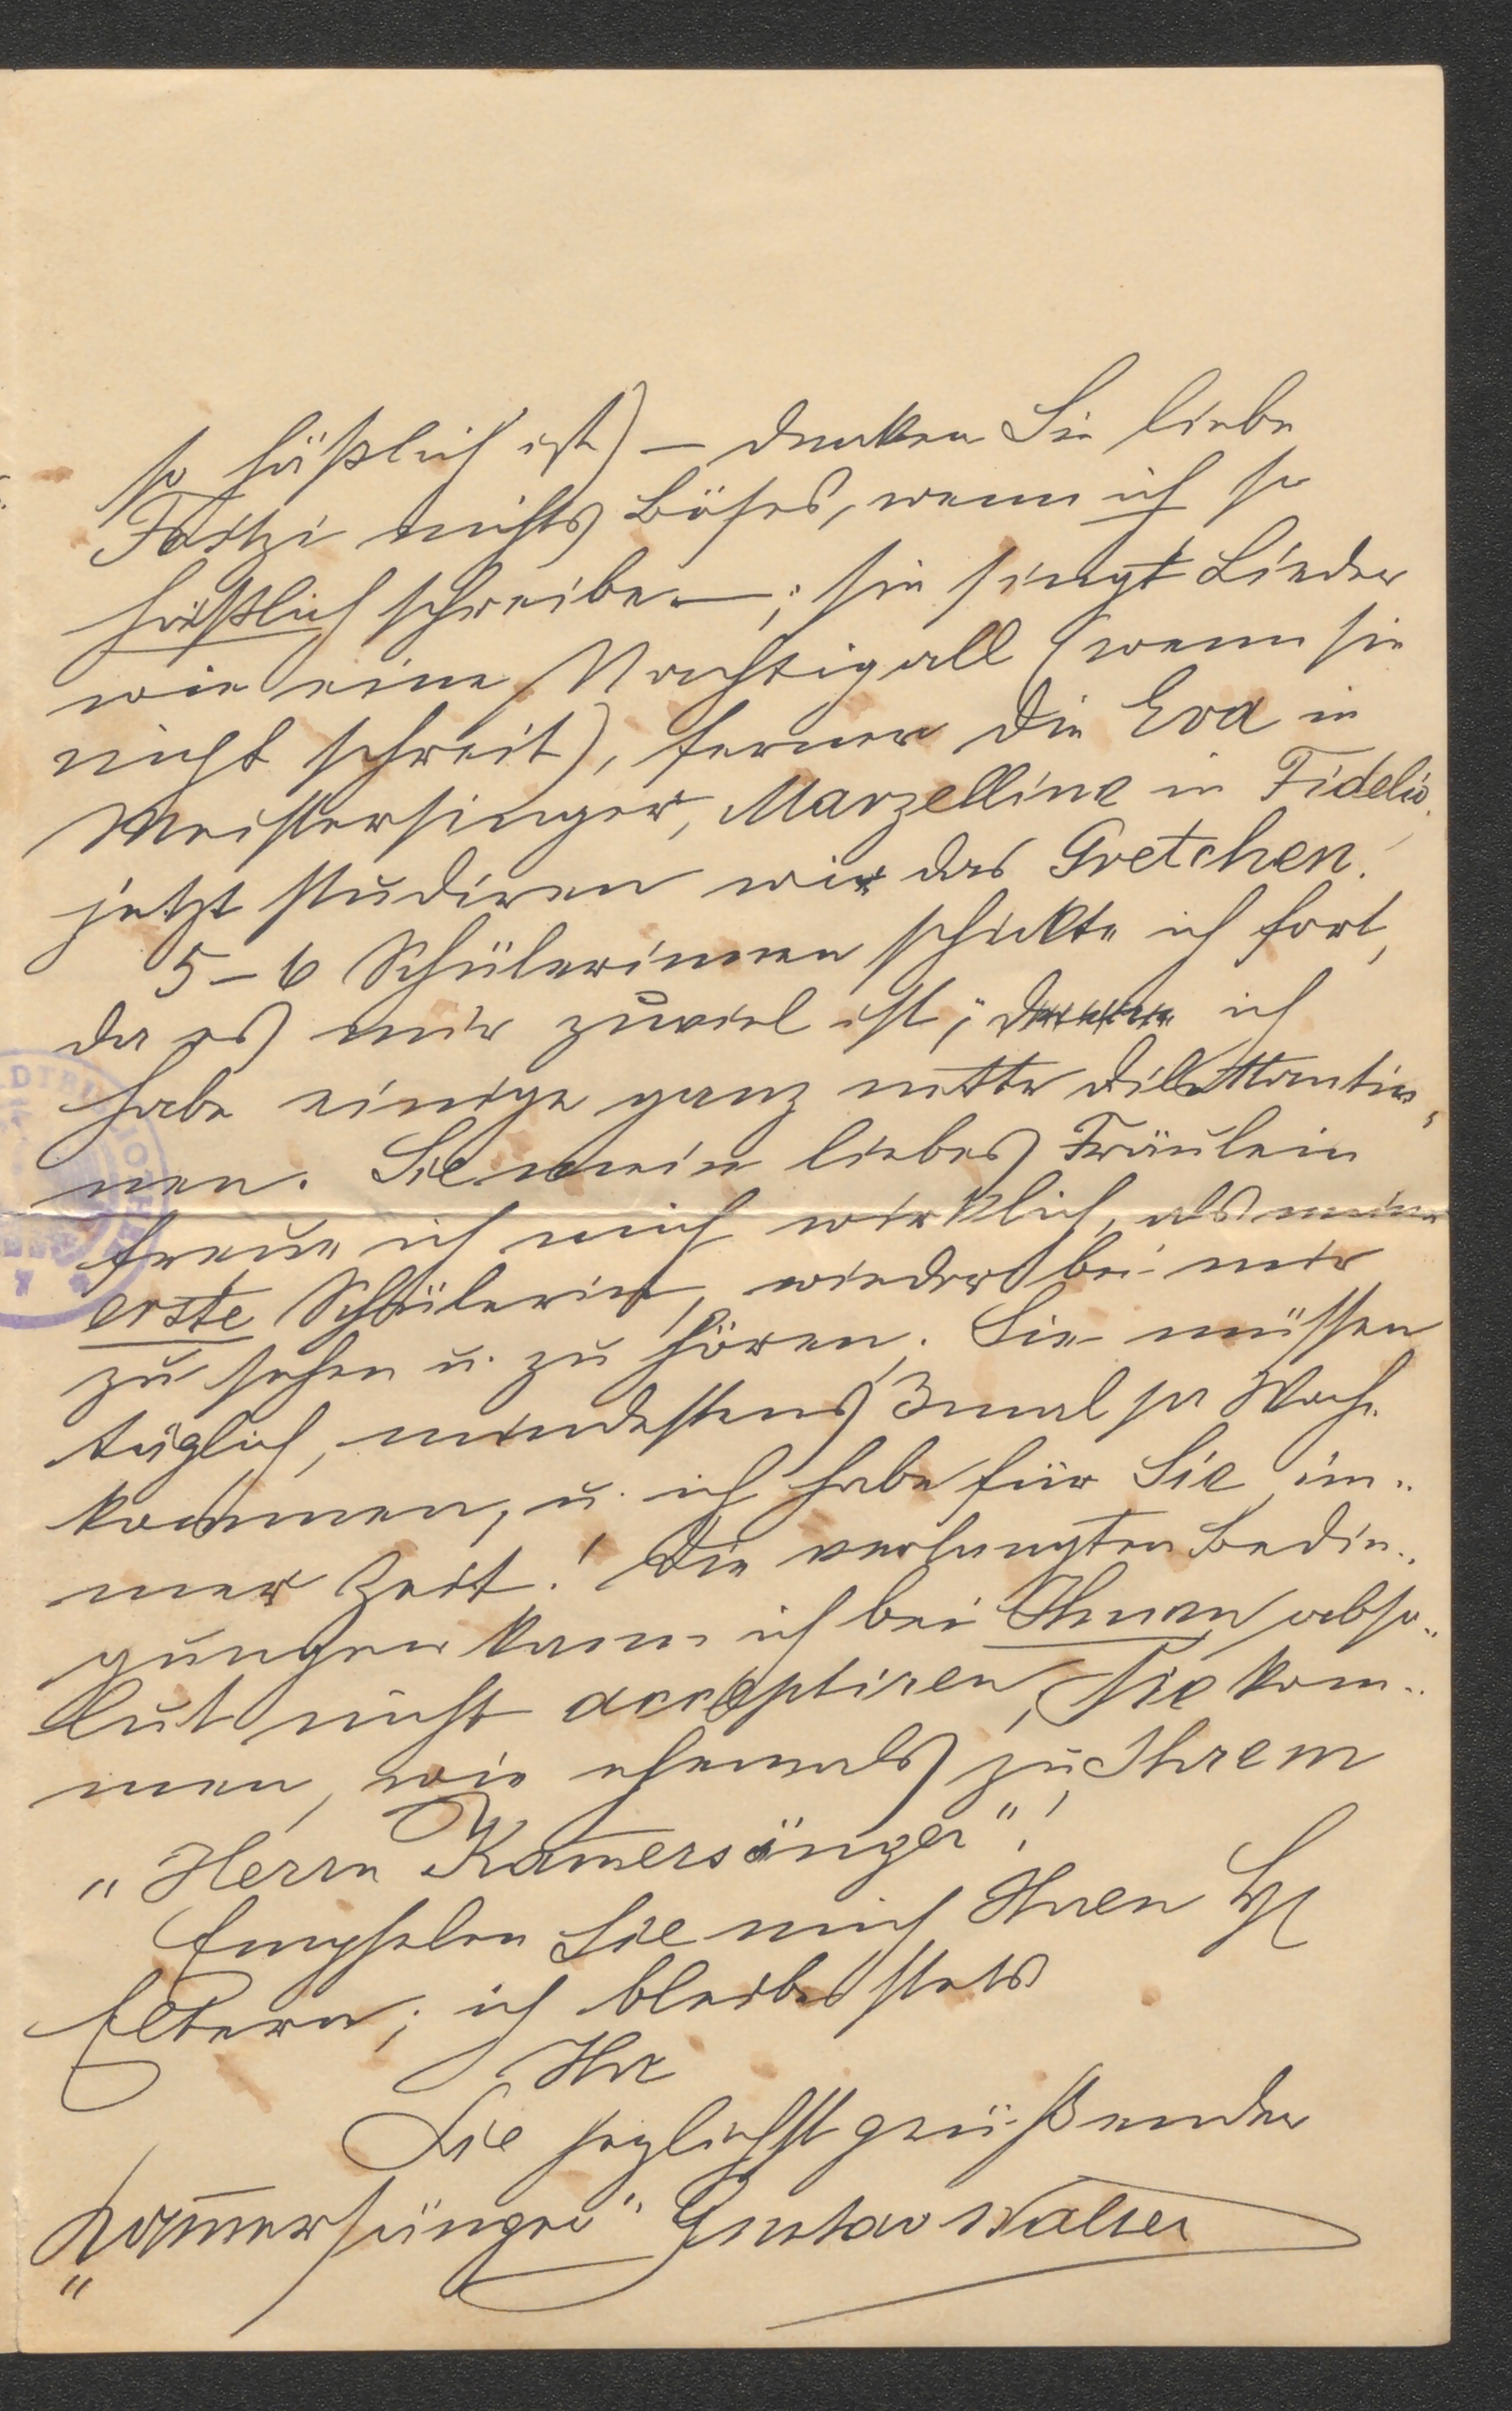 so häßlich ist) – denken Sie liebe
Fritzi nichts Böses, wenn ich so
häßlich schreibe –; sie singt Lieder
wie eine Nachtigall (wenn sie
nicht schreit), ferner die Eva in
Meistersinger, Marzelline in Fidelio,
jetzt studiren wir das Gretchen!
5–6 Schülerinnen schickte ich fort,
da es mir zuviel ist; ich
habe einige ganz nette Dilettantin„
nen. Sie mein liebes Fräulein
freue ich mich wirklich, als meine
erste Schülerin, wieder bei mir
zu sehen u. zu hören. Sie müssen
täglich, mindestens 3mal pr Woche
kommen, u. ich habe für Sie im„
mer Zeit! Die verlangten Bedin„
gungen kann ich bei Ihnen abso„
lut nicht acceptiren, Sie kom„
men, wie ehemals zu Ihrem
„Herrn Kam̅ersänger“!
Empfelen Sie mich Ihren
Eltern; ich bleibe stets
Ihr
Sie herzlichst grüßender
„Kam̅ersänger“ Gustav Walter